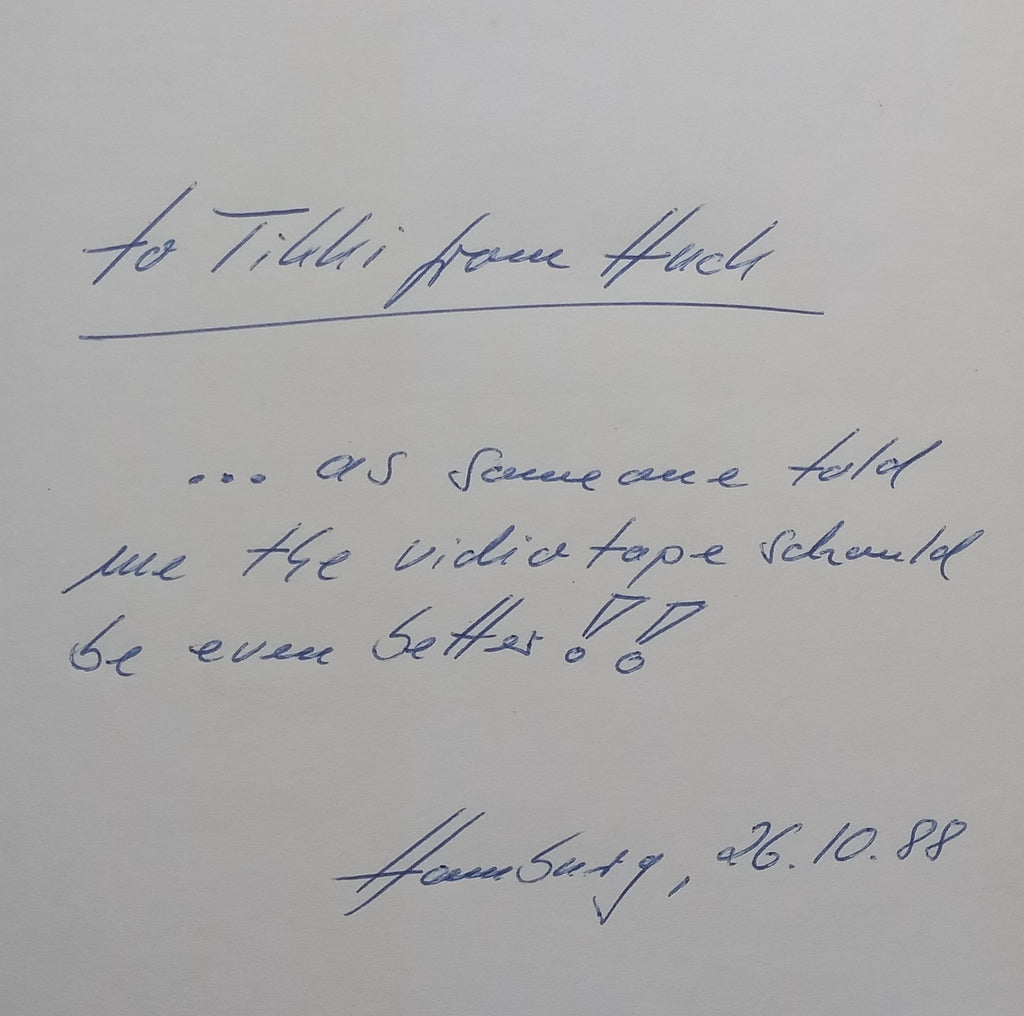 to Tikki from Huck
... as someone told
me the vidiotape schould
be even better!!
Hamburg, 26.10.88